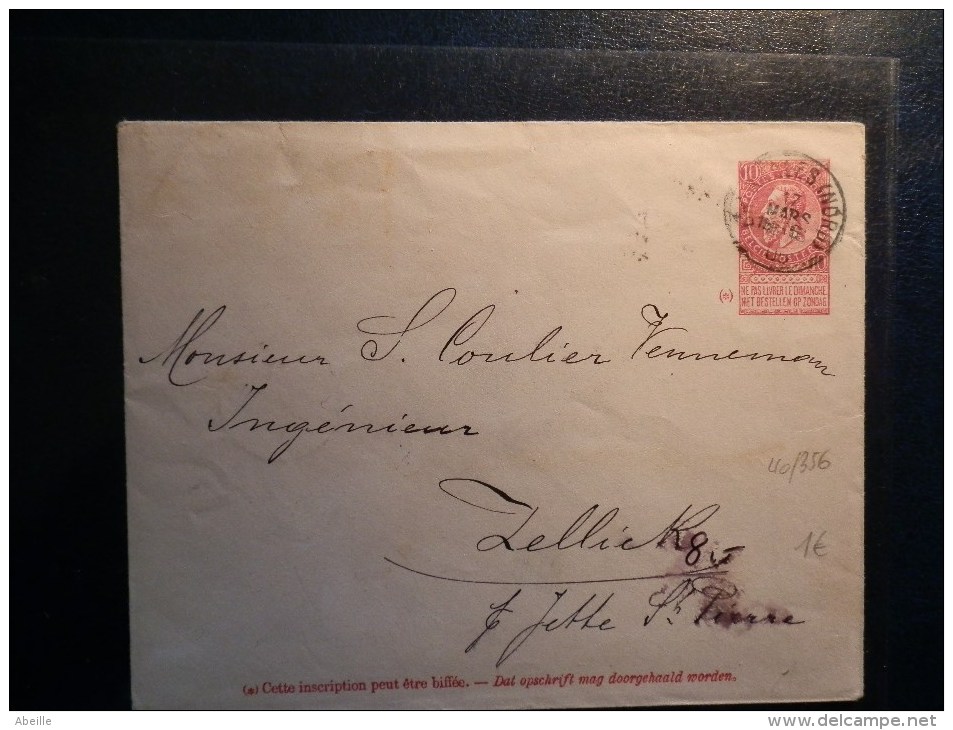 10
LLES (NORD)
17
MARS
(*)
NE PAS LIVRER LE DIMANCHE
NIET BESTELLEN OP ZONDAG
Monsieur S. Coulier Venneman
Ingénieur
40/356
Zellick 85
1€
p Jette St Pierre
(*) Cette inscription peut être biffée. — Dat opschrift mag doorgehaald worden.
Abeille
www.delcampe.net